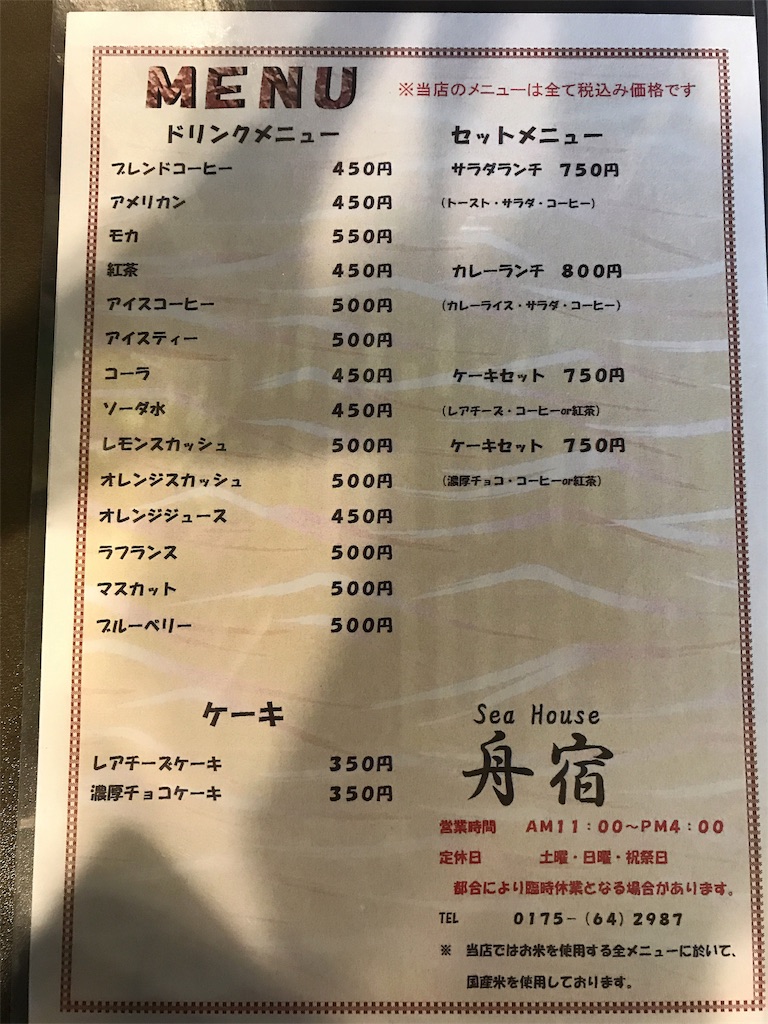 MENU ※当店のメニューは全て税込み価格です
ドリンクメニュー
ブレンドコーヒー 450円
アメリカン 450円
モカ 550円
紅茶 450円
アイスコーヒー 500円
アイスティー 500円
コーラ 450円
ソーダ水 450円
レモンスカッシュ 500円
オレンジスカッシュ 500円
オレンジジュース 450円
ラフランス 500円
マスカット 500円
ブルーベリー 500円
ケーキ
レアチーズケーキ 350円
濃厚チョコケーキ 350円
セットメニュー
サラダランチ 750円
(トースト・サラダ・コーヒー)
カレーランチ 800円
(カレーライス・サラダ・コーヒー)
ケーキセット 750円
(レアチーズ・コーヒーor紅茶)
ケーキセット 750円
(濃厚チョコ・コーヒーor紅茶)
Sea House
舟宿
営業時間 AM11:00~PM4:00
定休日 土曜・日曜・祝祭日
都合により臨時休業となる場合があります。
TEL 0175-(64)2987
※ 当店ではお米を使用する全メニューに於いて、
国産米を使用しております。